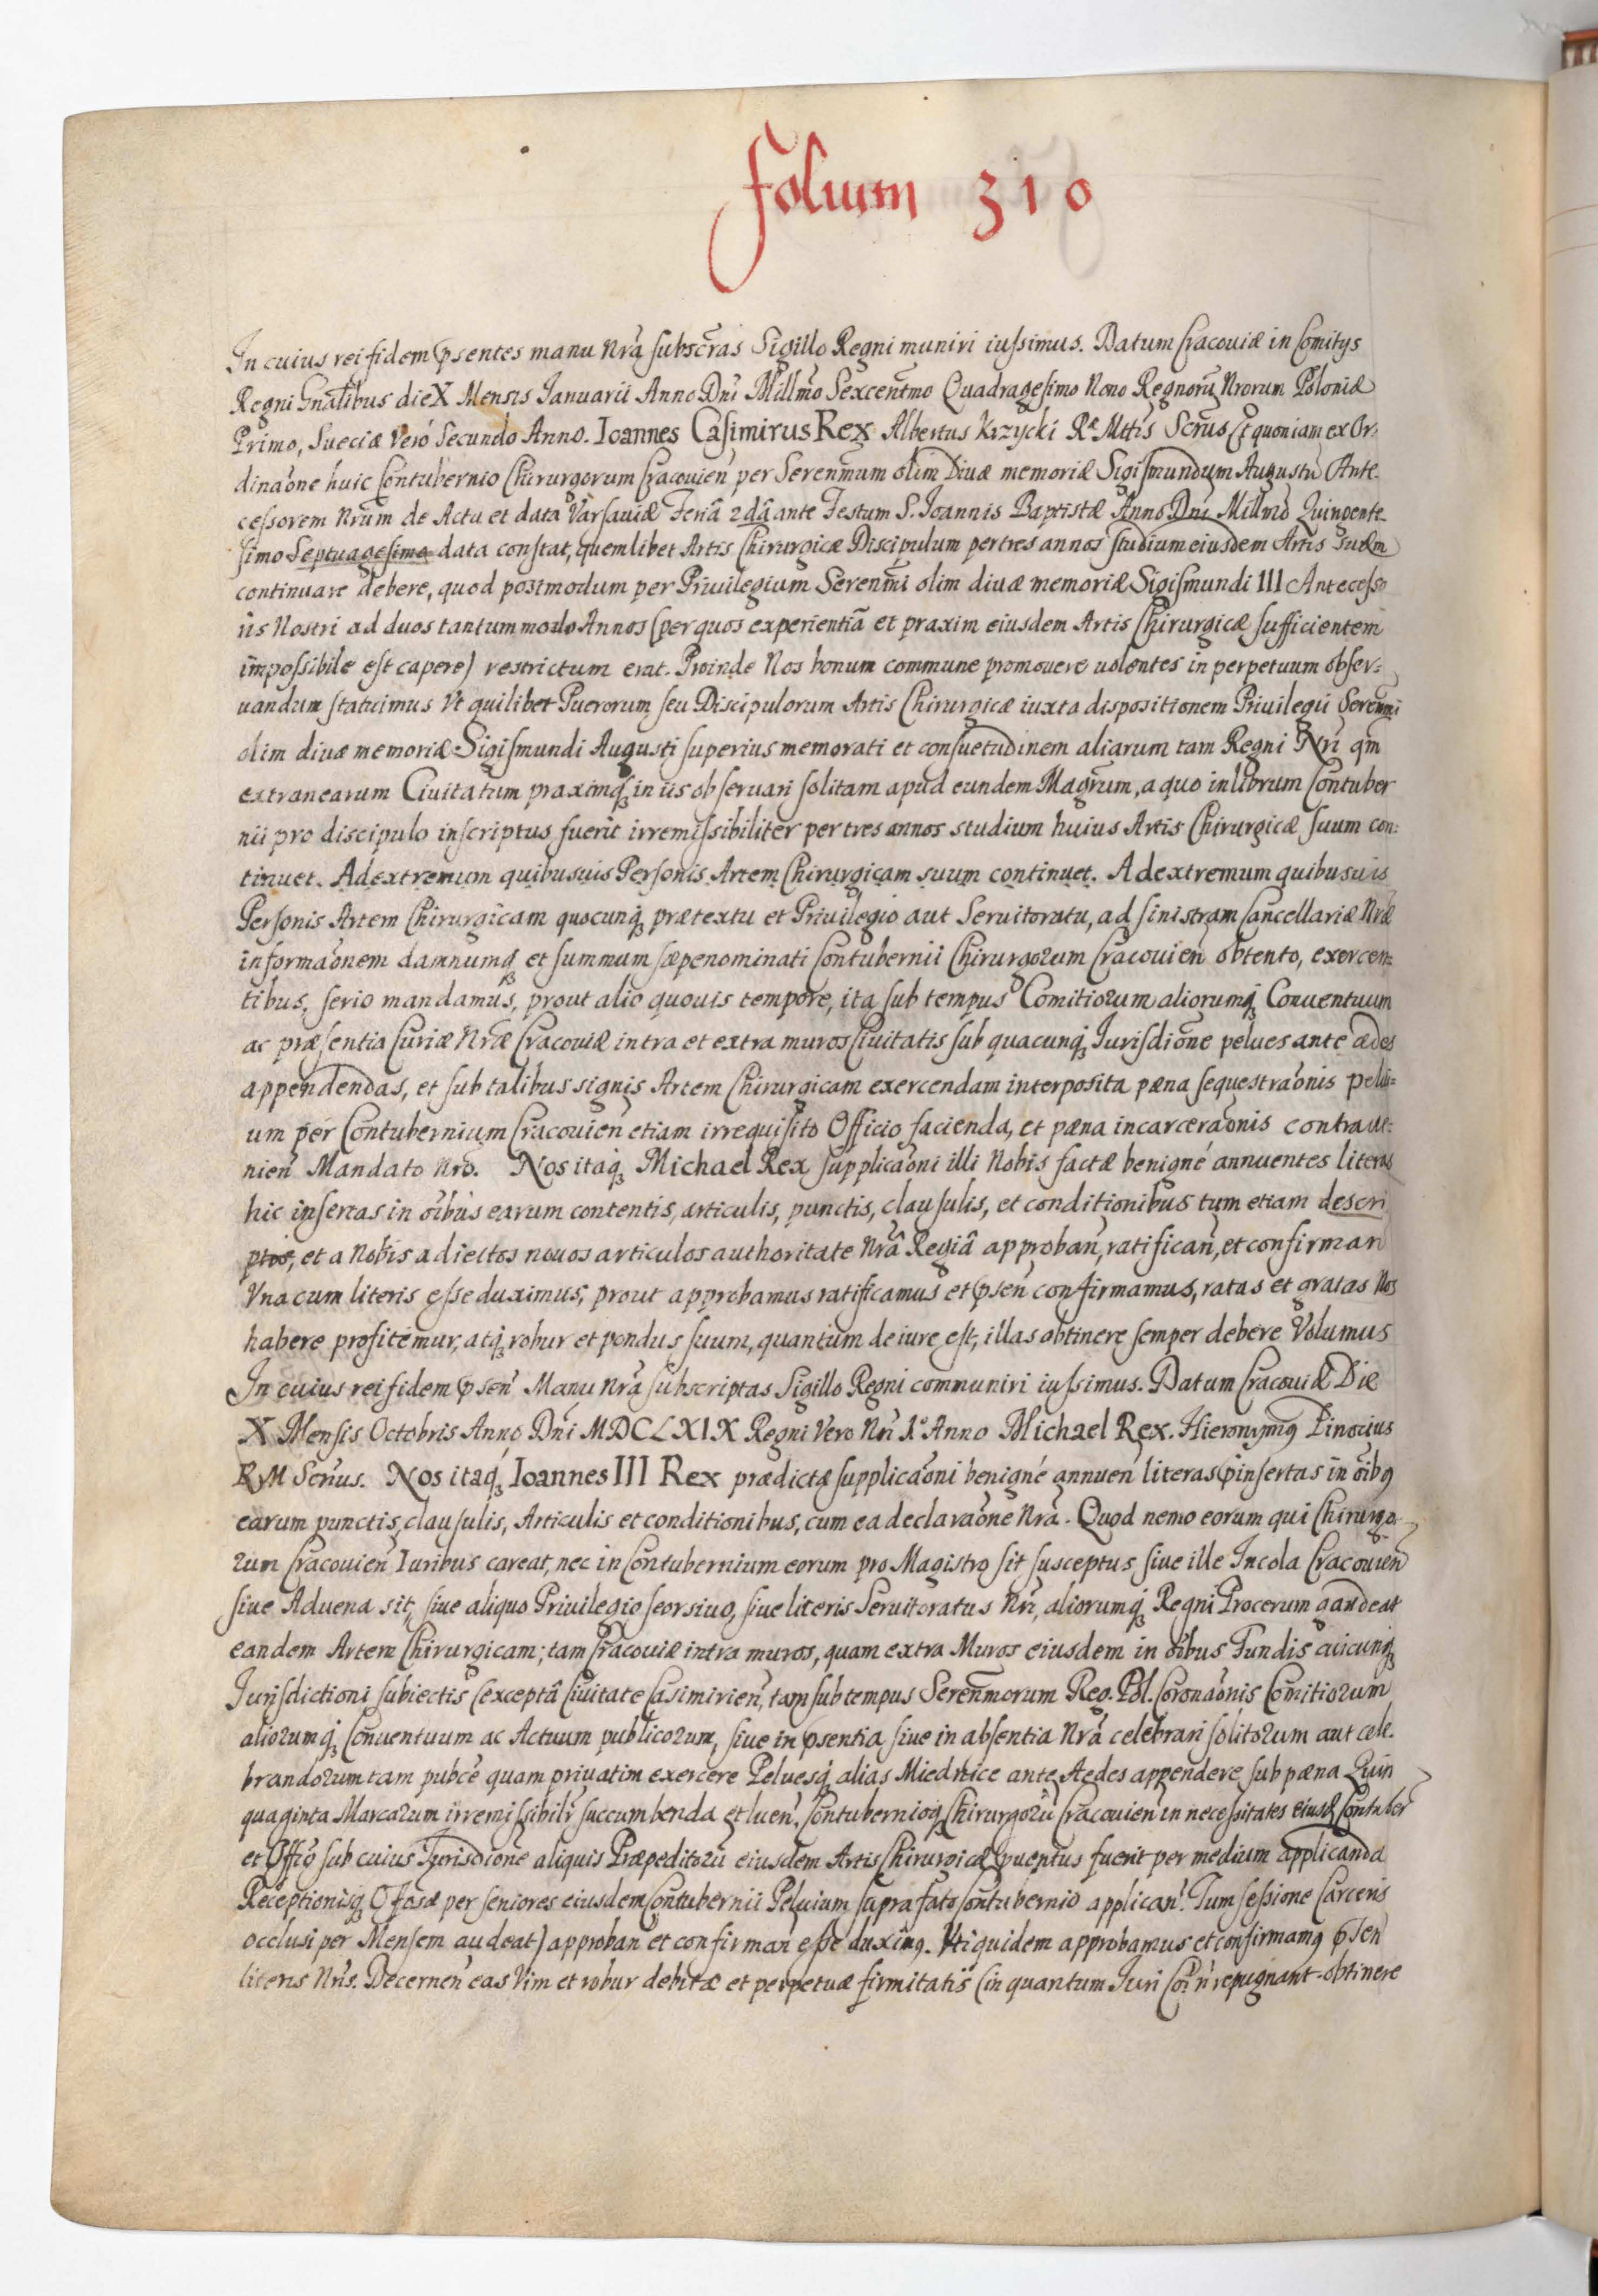 Folium 310
In cuius rei fidem pśentes manu nrã subscr̃as Sigillo Regni muniri iussimus. Datum Cracoviæ in Comitys
Regni Gñalibus die X Mensis Ianuarii Anno Dñi Millm̃o Sexcentm̃o Quadragesimo Nono Regnorũ Nrorum Poloniæ
Primo, Sueciæ Veró Secundo Anno. Ioannes Casimirus Rex Albertus Krzycki Ræ Mttis Scrũs Et quoniam ex Or-
dinaõne huic Contubernio Chirurgorum Cracouień per Serenm̃um olim Divæ memoriæ Sigismundum Augustũ Ante-
cessorem Nrũm de Actu et data Varsauiæ Feriâ 2dâ ante Festum S. Ioannis Baptistæ Anno Dñi Millmõ Quingente-
simo Septuagesimo data constat, quemlibet Artis Chirurgicæ Discipulum per tres annos studium eiusdem Artis suæm
continuare debere, quod postmodum per Priuilegium Serenm̃i olim diuæ memoriæ Sigismundi III Antecesso
iis Nostri ad duos tantummodo Annos (per quos experientiã et praxim eiusdem Artis Chirurgicæ sufficientem
impossibile est capere) restrictum erat. Proinde Nos bonum commune promouere uolentes in perpetuum obser-
uandum statuimus Vt quilibet Puerorum seu Discipulorum Artis Chirurgicæ iuxta dispositionem Priuilegii Serenm̃i
olim diuæ memoriæ Sigismundi Augusti superius memorati et consuetudinem aliarum tam Regni Nri qm̃
extranearum Ciuitatum praximq́ in iis obseruari solitam apud eundem Magr̃um, a quo in librum Contuber
nii pro discipulo inscriptus fuerit irremissibiliter per tres annos studium huius Artis Chirurgicæ suum con-
tinuet. Ad extremum quibusuis Personis Artem Chirurgicam suum continuet. Ad extremum quibusuis
Personis Artem Chirurgicam quocunq́ prætextu et Priuilegio aut Seruitoratu, ad sinistram Cancellariæ Nræ
informaõnem damnumq́ et summum sæpenominati Contubernii Chirurgorum Cracouień obtento, exercen-
tibus, serio mandamus, prout alio quouis tempore, ita sub tempus Comitiorum aliorumq́ Conuentuum
ac præsentia Curiæ Nræ Cracoviæ intra et extra muros Ciuitatis sub quacunq́ Iurisdiõne pelues ante ædes
appendendas, et sub talibus signis Artem Chirurgicam exercendam interposita pæna sequestraõnis pelui-
um per Contubernium Cracouień etiam irrequisito Officio facienda, et pæna incarceraõnis contraue-
nień Mandato Nro. Nos itaq́ Michael Rex supplicaõni illi Nobis factæ benigné annuentes literas
hic insertas in oĩbus earum contentis, articulis, punctis, clausulis, et conditionibus tum etiam descri
ptos, et a Nobis adiectos nouos articulos authoritate Nrâ Regiâ approbań, ratificań, et confirmań
Vna cum literis esse duximus, prout approbamus ratificamus et pśeń confirmamus, ratas et gratas Nos
habere profitemur, atq́ robur et pondus suum, quantum de iure est, illas obtinere semper debere Volumus
In cuius rei fidem pśeń Manu Nrã subscriptas Sigillo Regni communiri iussimus. Datum Cracoviæ Die
X Mensis Octobris Anno Dñi MDCLXIX Regni Vero Nri 1º Anno Michael Rex. Hieronymꝯ Pinocius
R M Scrius. Nos itaq́ Ioannes III Rex prædictæ supplicaõni benigné annueń literas pinsertas in oĩbꝯ
earum punctis, clausulis, Articulis et conditionibus, cum ea declaraõne Nrâ. Quod nemo eorum qui Chirurgo-
rum Cracouień Iuribus careat, nec in Contubernium eorum pro Magistro sit susceptus siue ille Incola Cracouień
siue Aduena sit, siue aliquo Priuilegio seorsiuo, siue literis Seruitoratus Nri, aliorumq́ Regni Procerum gaudeat
eandem Artem Chirurgicam; tam Cracoviæ intra muros, quam extra Muros eiusdem in oĩbus Fundis cuicunq́
Iurisdictioni subiectis (exceptâ Ciuitate Casimirień, tam sub tempus Serenm̃orum Reg. Pol. Coronaõnis Comitiorum
aliorumq́ Conuentuum ac Actuum publicorum, siue in pśentia siue in absentia Nrâ celebrari solitorum aut cele-
brandorum tam pubcè quam priuatim exercere Peluesq́ alias Miednice ante Aedes appendere sub pæna Quin
quaginta Marcarum irremissibilr̃ succumbenda et lueń, Contubernioq́ Chirurgorũ Cracouień in necessitates eiusd Contuber
et Offio sub cuius Iurisdiõne aliquis Præpeditorũ eiusdem Artis Chirurgicæ puentus fuerit per medium applicanda
Receptionisq́ per seniores eiusdem Contubernii Peluium supra fato Contubernio applicań. Tum sessione Carceris
occlusi per Mensem audeat) approbań et confirmań esse duximꝯ. Vti quidem approbamus et confirmamꝯ pśeń
literis Nris. Decerneń eas Vim et robur debitæ et perpetuæ firmitatis (in quantum Iuri Coĩ ñ repugnant obtinere